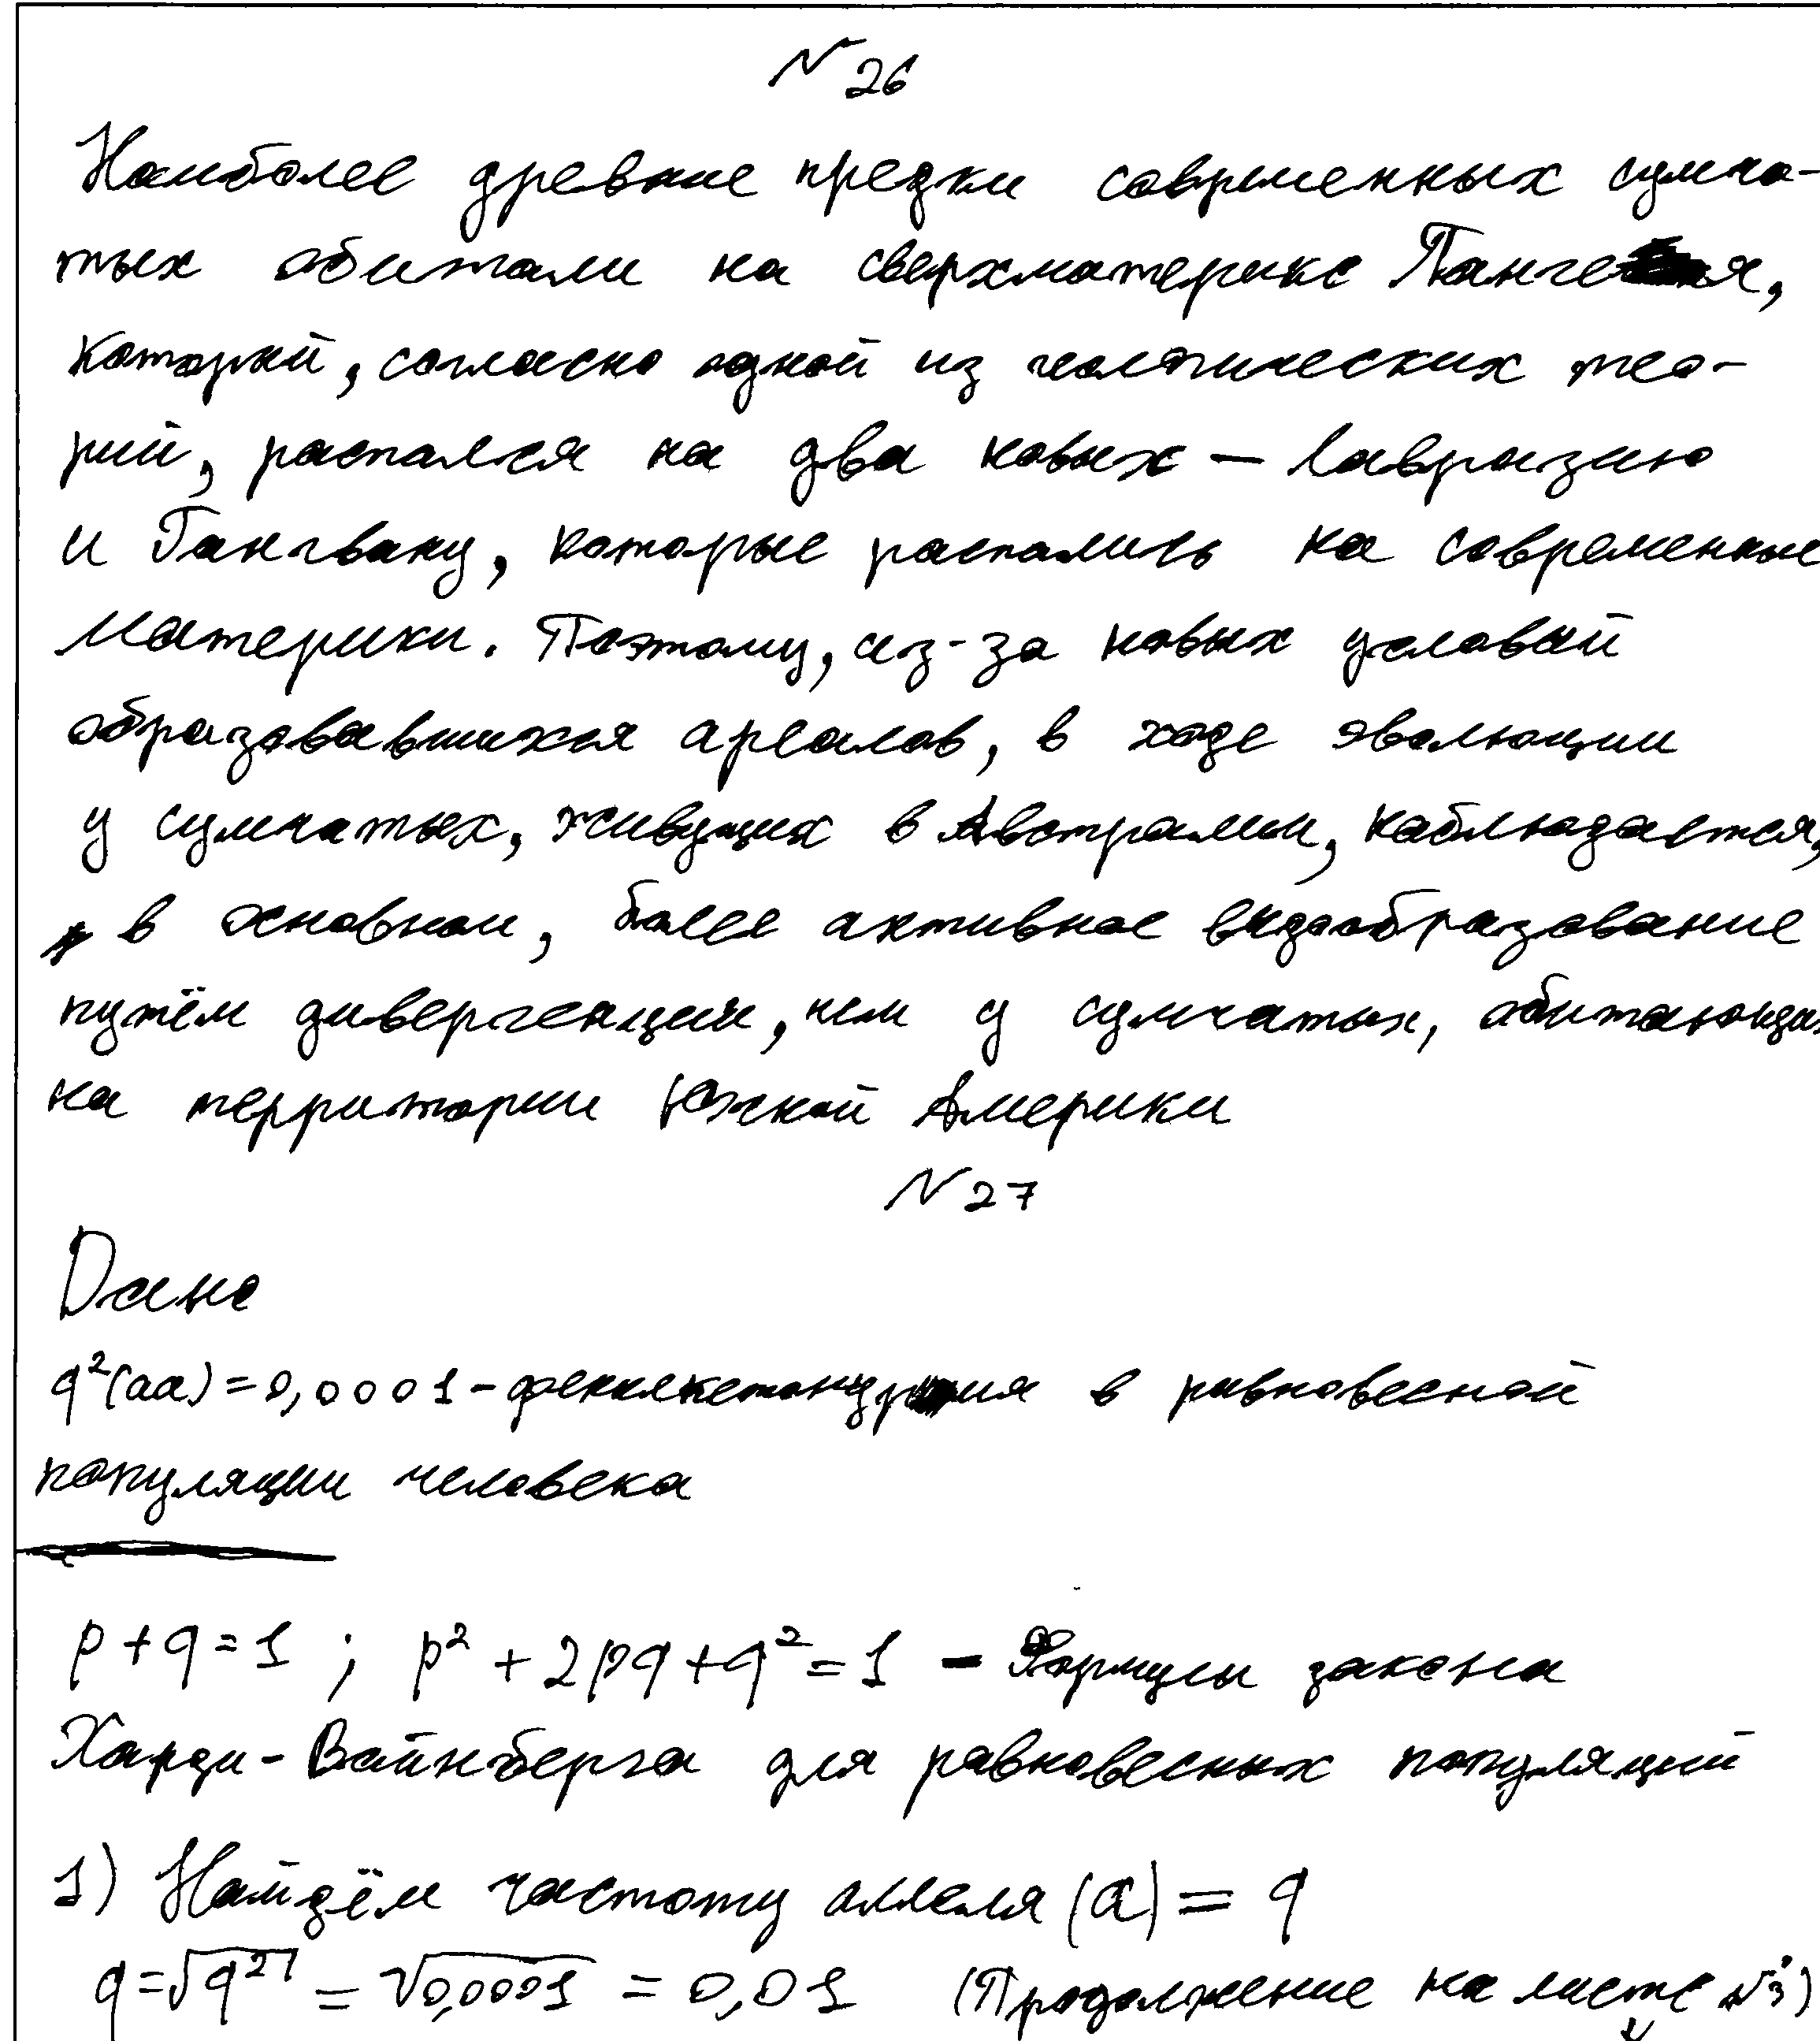 N 26
Наиболее древние предки современных сумча-
тых обитали на сверхматерике Пангея,
который, согласно одной из геологических тео-
рий, распался на два новых – Лавразию
и Гангвану, которые распались на современные
материки. Поэтому, из-за новых условий
образовавшихся ареалов, в ходе эволюции
у сумчатых, живущих в Австралии, наблюдается,
в основном, более активное видообразование
путём дивергенции, чем у сумчатых, обитающих
на территории Южной Америки
N 27
Дано
q²(aa) = 0,0001 – фенилкетонурия в равновесной
популяции человека
p + q = 1 ; p² + 2pq + q² = 1 – Формулы закона
Харди-Вайнберга для равновесных популяций
1) Найдём частоту аллеля (a) = q
q = √q² = √0,0001 = 0,01 (Продолжение на листе №3)